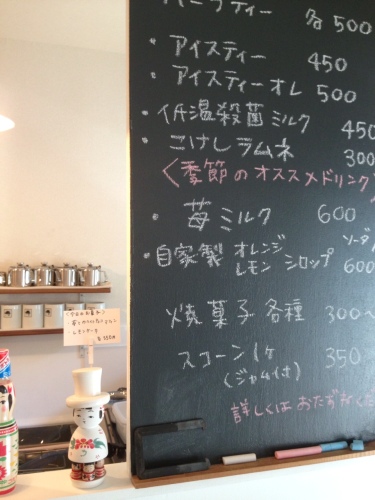 ハーブティー 各500
・アイスティー 450
・アイスティーオレ 500
・低温殺菌ミルク 450
・こけしラムネ 300
〈季節のオススメドリンク〉
・苺ミルク 600
・自家製 オレンジ レモン シロップ ソーダ 600
焼菓子各種 300〜
スコーン1ヶ 350
(ジャム付)
詳しくはおたずねくだ
レモンケーキ